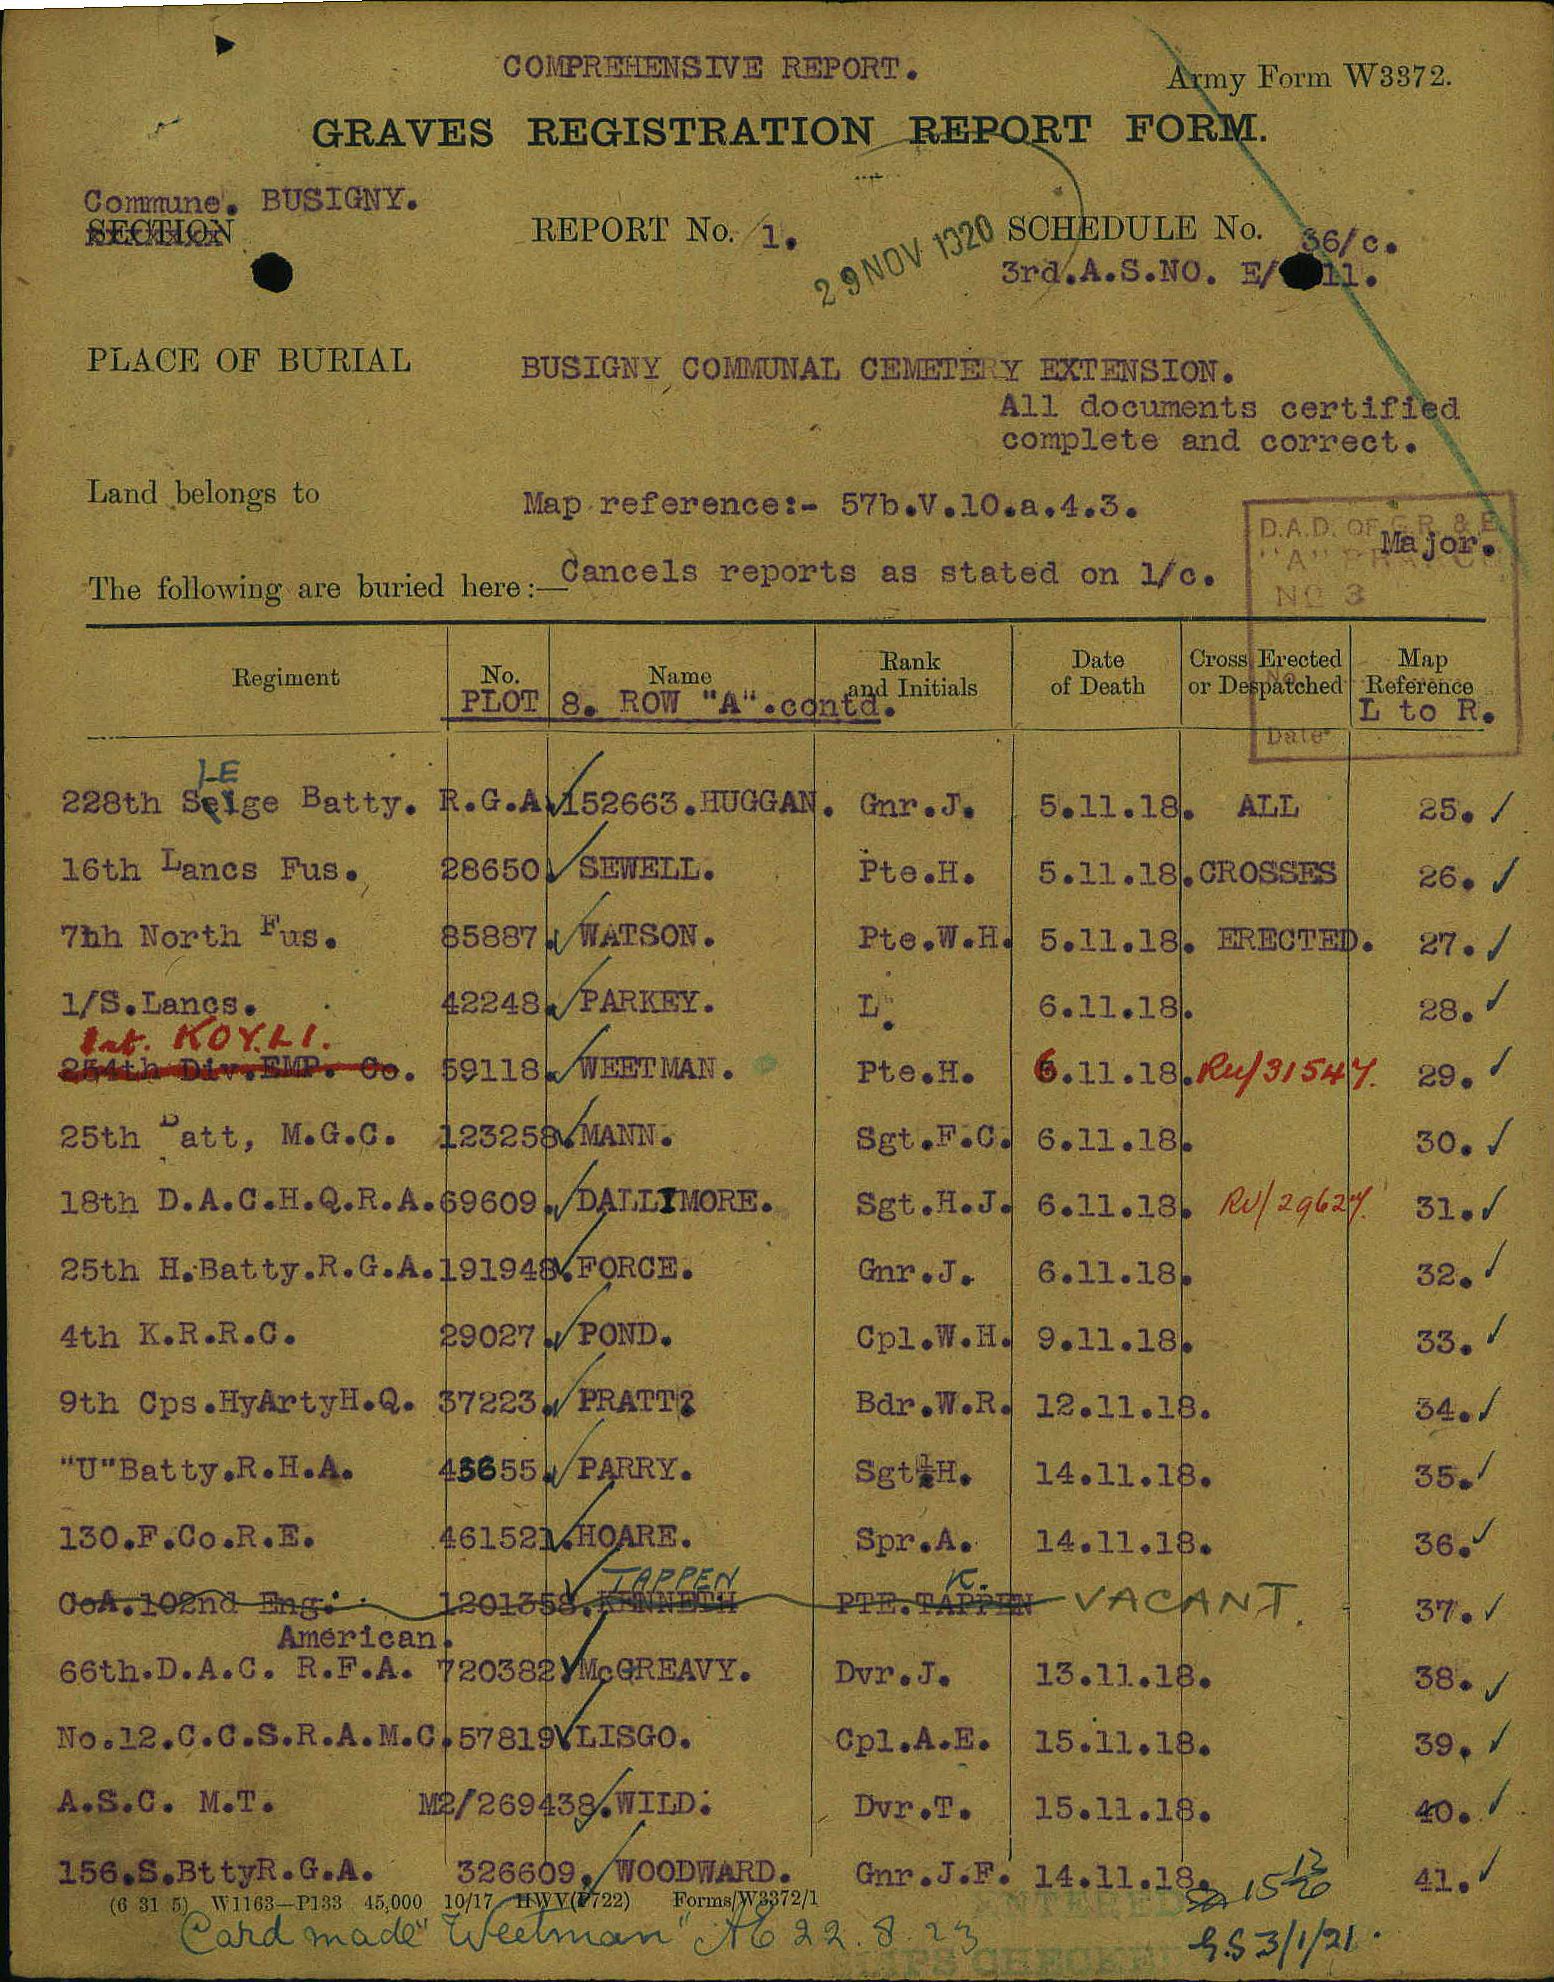 COMPREHENSIVE REPORT.
Army Form W3372.
GRAVES REGISTRATION REPORT FORM.
Commune. BUSIGNY.
SECTION
REPORT No. 1.
29 NOV 1920
SCHEDULE No. 36/c.
3rd.A.S.NO. E/ 11.
PLACE OF BURIAL
BUSIGNY COMMUNAL CEMETERY EXTENSION.
All documents certified
complete and correct.
Land belongs to
Map reference:- 57b.V.10.a.4.3.
D.A.D. OF G.R. & E.
Major.
"A"
NO 3
The following are buried here:— Cancels reports as stated on 1/c.
Regiment No. Name Rank and Initials Date of Death Cross Erected or Despatched Map Reference
PLOT 8. ROW "A".contd. L to R.
Date
IE
228th Seige Batty. R.G.A 152663.HUGGAN. Gnr.J. 5.11.18. ALL 25.
16th Lancs Fus. 28650 SEWELL. Pte.H. 5.11.18. CROSSES 26.
7hh North Fus. 85887. WATSON. Pte.W.H. 5.11.18. ERECTED. 27.
1/S.Lancs. 42248. PARKEY. L. 6.11.18. 28.
Int. KOYLI.
254th Div.EMP. Co. 59118. WEETMAN. Pte.H. 6.11.18. Ru/31547. 29.
25th Batt, M.G.C. 123258. MANN. Sgt.F.C. 6.11.18. 30.
18th D.A.C.H.Q.R.A. 69609. DALLIMORE. Sgt.H.J. 6.11.18. Ru/29627. 31.
25th H.Batty.R.G.A. 191948. FORCE. Gnr.J. 6.11.18. 32.
4th K.R.R.C. 29027. POND. Cpl.W.H. 9.11.18. 33.
9th Cps.HyArtyH.Q. 37223. PRATT? Bdr.W.R. 12.11.18. 34.
"U"Batty.R.H.A. 45655. PARRY. Sgt.H. 14.11.18. 35.
130.F.Co.R.E. 461521. HOARE. Spr.A. 14.11.18. 36.
TAPPEN K.
CoA.102nd Eng. 1201358. KENNETH PTE.TAPPEN VACANT. 37.
American.
66th.D.A.C. R.F.A. 720382. McGREAVY. Dvr.J. 13.11.18. 38.
No.12.C.C.S.R.A.M.C. 57819. LISGO. Cpl.A.E. 15.11.18. 39.
A.S.C. M.T. M2/269438. WILD. Dvr.T. 15.11.18. 40.
156.S.BttyR.G.A. 326609. WOODWARD. Gnr.J.F. 14.11.18. 41.
(6 31 5) W1163—P133 45,000 10/17 HWV(P722) Forms/W3372/1
ANTERED
15 12/20
Card made "Weetman" AC 22.8.23
G.S 3/1/21.
CHECKED